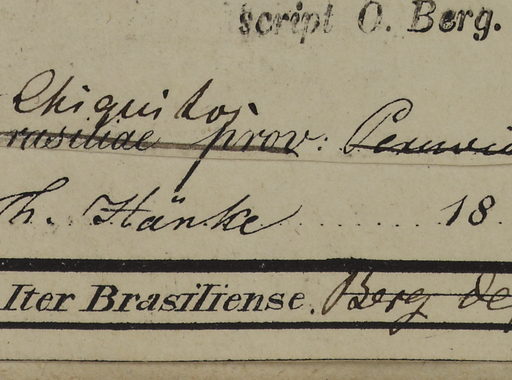 script O. Berg.
Chiquitos
rasiliae prov: Peruvia
Th. Hänke ........ 18.
Iter Brasiliense. Berg de